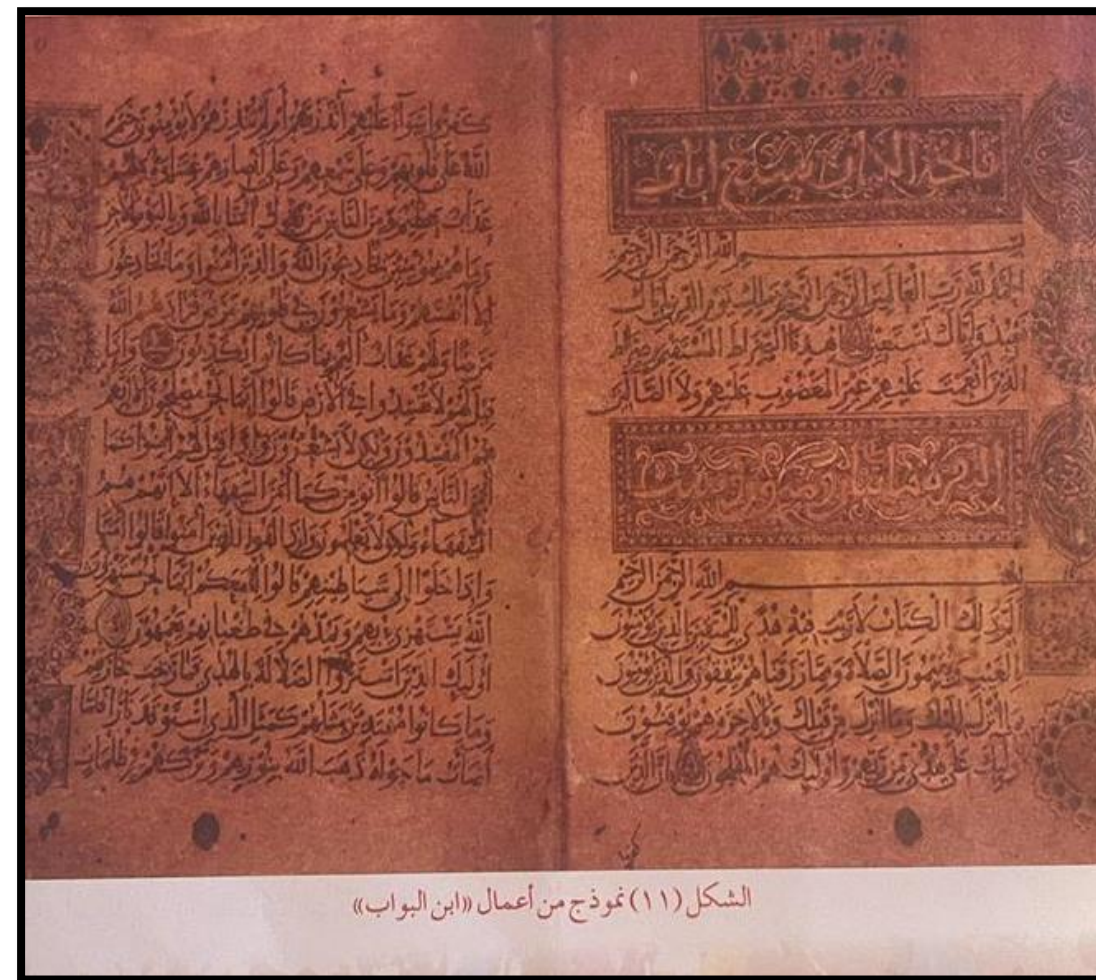 فاتحة الكتاب سبع ايات
بسم الله الرحمن الرحيم
الحمد لله رب العالمين الرحمن الرحيم ملك يوم الدين اياك
نعبد واياك نستعين اهدنا الصراط المستقيم صراط
الذين انعمت عليهم غير المغضوب عليهم ولا الضالين
البقرة
بسم الله الرحمن الرحيم
الم ذلك الكتاب لا ريب فيه هدى للمتقين الذين يؤمنون
بالغيب ويقيمون الصلاة ومما رزقناهم ينفقون والذين يؤمنون
بما انزل اليك وما انزل من قبلك وبالاخرة هم يوقنون
اوليك على هدى من ربهم واوليك هم المفلحون ان الذين
كفروا سواء عليهم أأنذرتهم أم لم تنذرهم لا يؤمنون ختم
الله على قلوبهم وعلى سمعهم وعلى أبصارهم غشاوة ولهم
عذاب عظيم ومن الناس من يقول آمنا بالله وباليوم الآخر
وما هم بمؤمنين يخادعون الله والذين آمنوا وما يخادعون
إلا أنفسهم وما يشعرون في قلوبهم مرض فزادهم الله
مرضا ولهم عذاب أليم بما كانوا يكذبون وإذا
قيل لهم لا تفسدوا في الأرض قالوا إنما نحن مصلحون ألا إنهم
هم المفسدون ولكن لا يشعرون وإذا قيل لهم آمنوا كما
آمن الناس قالوا أنؤمن كما آمن السفهاء ألا إنهم هم
السفهاء ولكن لا يعلمون وإذا لقوا الذين آمنوا قالوا آمنا
وإذا خلوا إلى شياطينهم قالوا إنا معكم إنما نحن مستهزئون
الله يستهزئ بهم ويمدهم في طغيانهم يعمهون
أوليك الذين اشتروا الضلالة بالهدى فما ربحت تجارتهم
وما كانوا مهتدين مثلهم كمثل الذي استوقد نارا فلما
أضاءت ما حوله ذهب الله بنورهم وتركهم في ظلمات
الشكل (١١) نموذج من أعمال «ابن البواب»